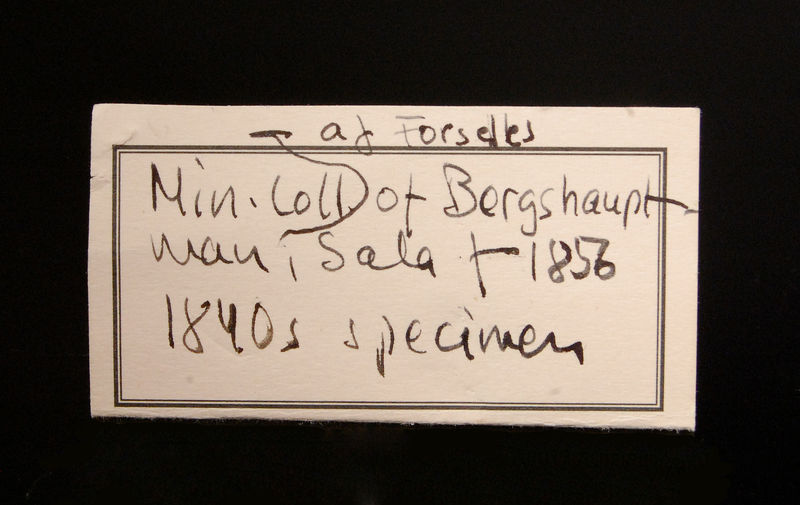 — af Forselles
Min. Coll of Bergshaupt-
man, Sala † 1856
1840s specimen